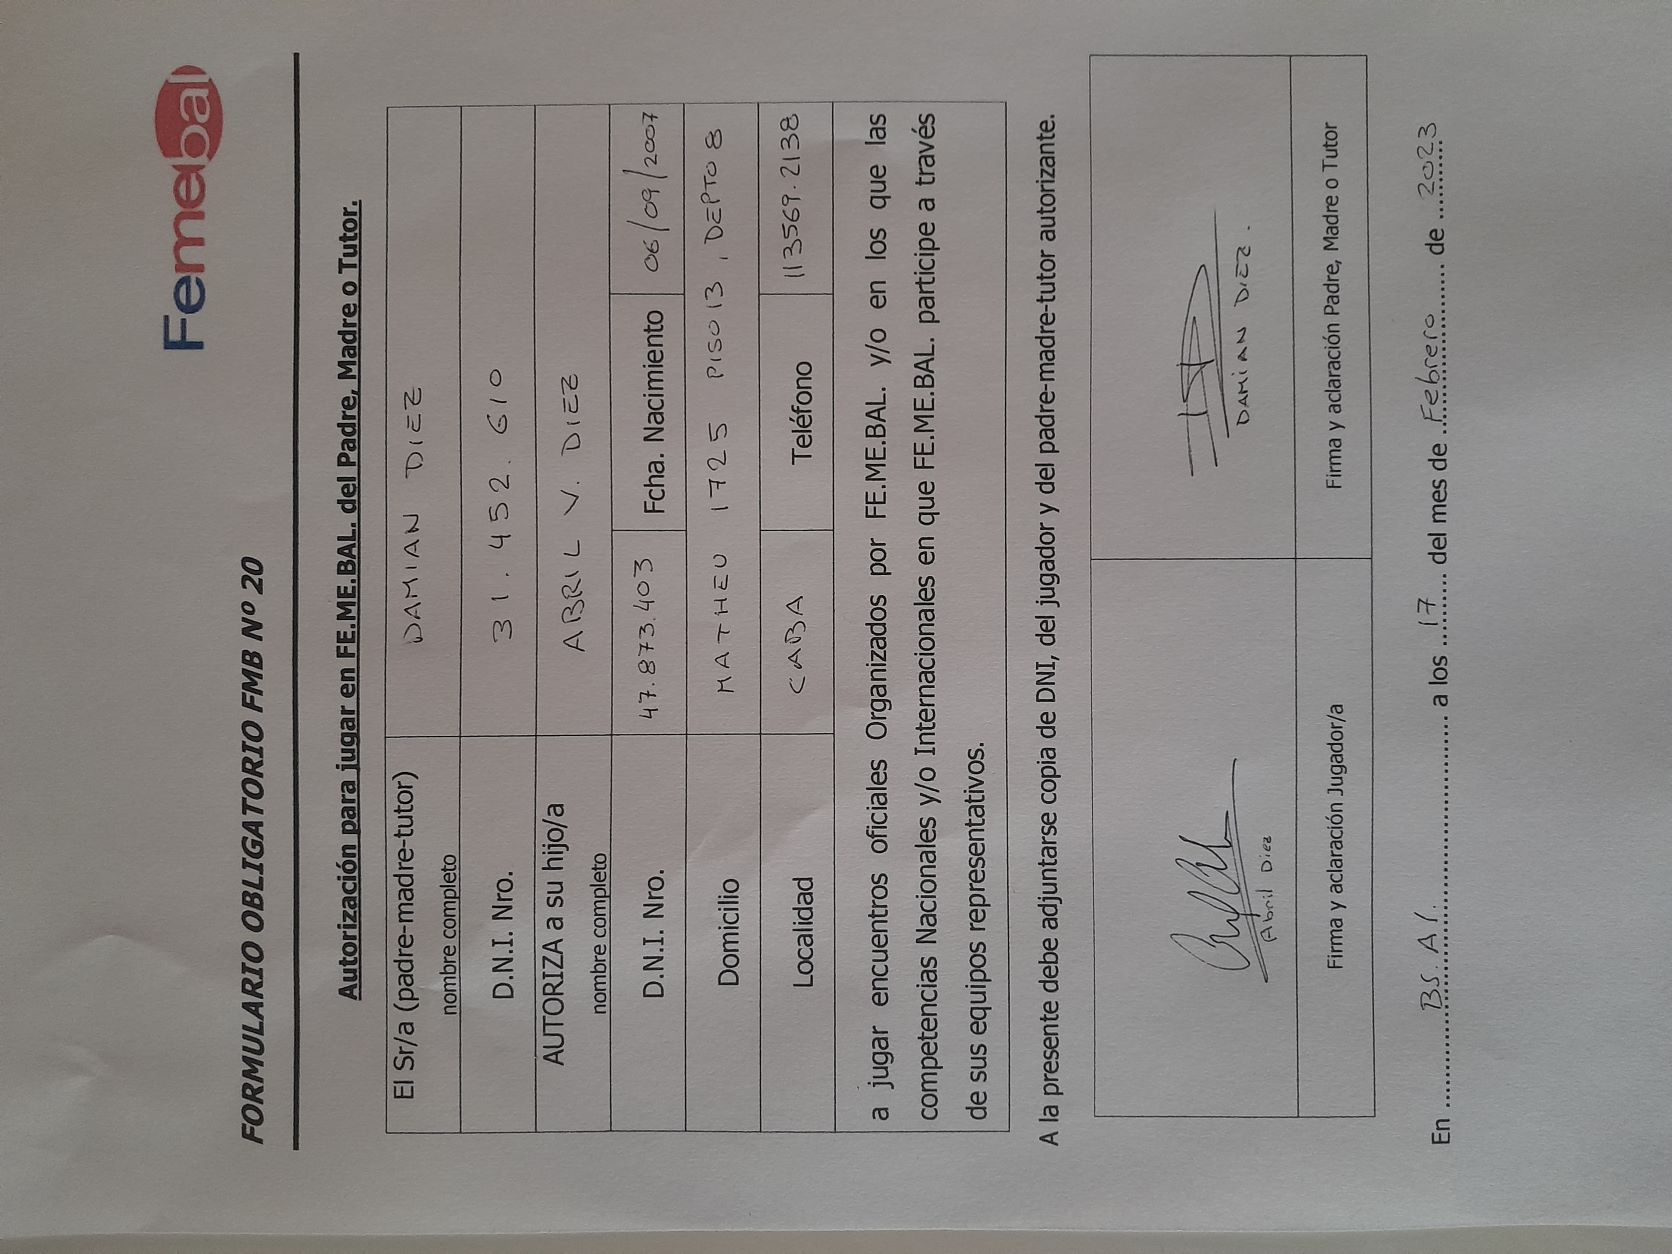 Femebal
FORMULARIO OBLIGATORIO FMB Nº 20
Autorización para jugar en FE.ME.BAL. del Padre, Madre o Tutor.
El Sr/a (padre-madre-tutor) nombre completo DAMIAN DIEZ
D.N.I. Nro. 31.452.610
AUTORIZA a su hijo/a nombre completo ABRIL V. DIEZ
D.N.I. Nro. 47.873.403 Fcha. Nacimiento 06/09/2007
Domicilio MATHEU 1725 PISO 13, DEPTO 8
Localidad CABA Teléfono 113569.2138
a jugar encuentros oficiales Organizados por FE.ME.BAL. y/o en los que las
competencias Nacionales y/o Internacionales en que FE.ME.BAL. participe a través
de sus equipos representativos.
A la presente debe adjuntarse copia de DNI, del jugador y del padre-madre-tutor autorizante.
Abril Diez
DAMIAN DIEZ.
Firma y aclaración Jugador/a Firma y aclaración Padre, Madre o Tutor
En BS. As. a los 17 del mes de Febrero de 2023